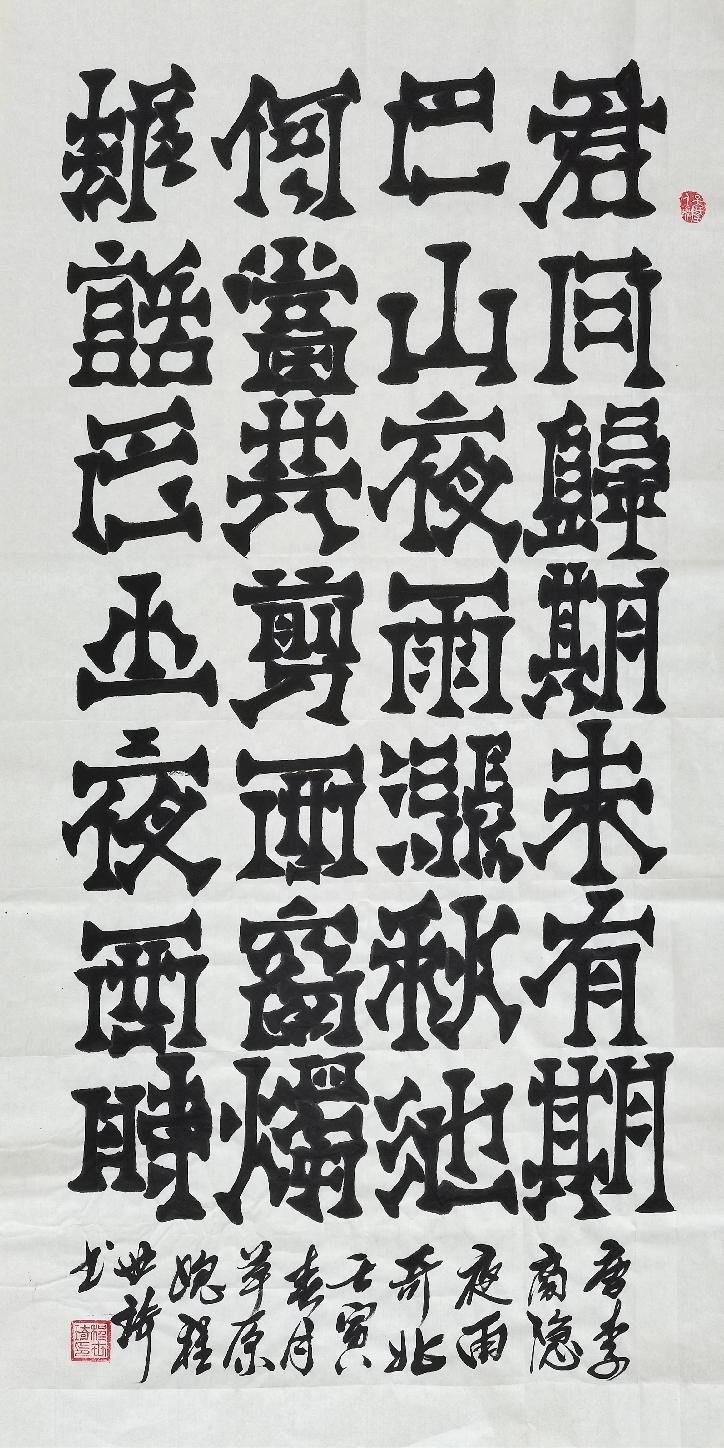 君问歸期未有期
巴山夜雨漲秋池
何當共剪西窗燭
雖話巴山夜雨時
唐李
商隐
夜雨
寄北
壬寅
春月
草原
程
世
书